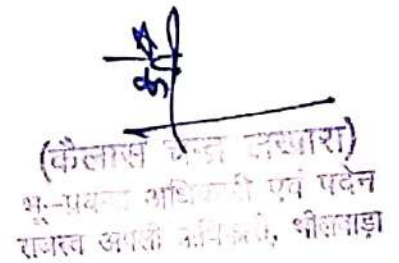 (कैलास चन्द्र लखारा)
भू-प्रबन्ध अधिकारी एवं पदेन
राजस्व अपील अधिकारी, भीलवाड़ा